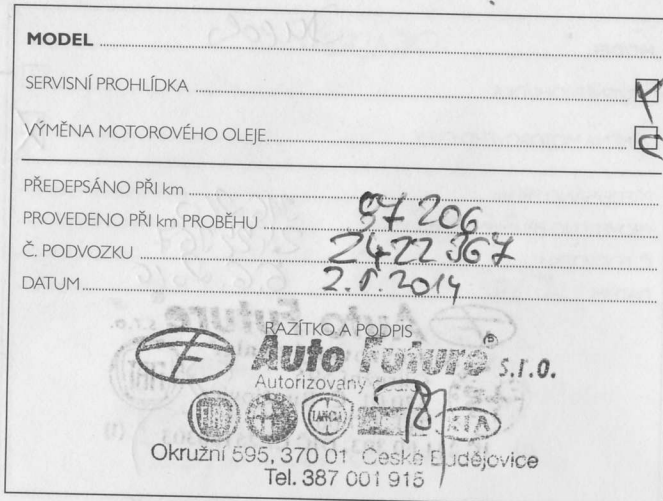 MODEL
SERVISNÍ PROHLÍDKA
VÝMĚNA MOTOROVÉHO OLEJE
PŘEDEPSÁNO PŘI km
PROVEDENO PŘI km PROBĚHU 97 206
Č. PODVOZKU 2422367
DATUM 2. 2014
RAZÍTKO A PODPIS
Auto Future® s.r.o.
Autorizovaný
FIAT LANCIA KIA
Okružní 595, 370 01 České Budějovice
Tel. 387 001 915